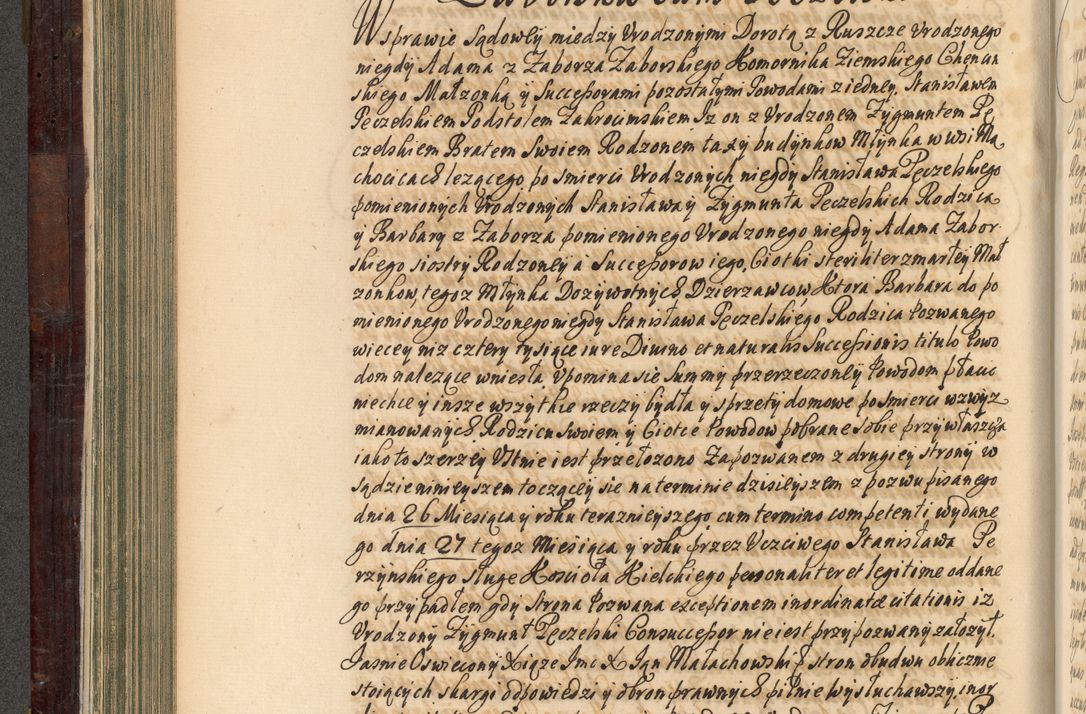 W sprawie sądowey miedzy Urodzonymi Dorotą z Ruszcze Urodzonego
niegdy Adama z Zaborza Zaborskiego Komornika Ziemskiego Chencin
skiego Małzonką y Successorami pozostałymi Powodami z iedney, Stanisławem
Pęczelskiem Podstolem Zakrocimskiem Iz on z Urodzonem Zygmuntem Pę
czelskiem Bratem Swoiem Rodzonem tak y budynkow Młynka w wsi Ma
chocicach lezącego po smierci Urodzonych niegdy Stanisława Pęczelskiego
pomienionych Urodzonych Stanisława y Zygmunta Pęczelskich Rodzica
y Barbary z Zaborza pomienionego Urodzonego niegdy Adama Zabor
skiego siostry Rodzoney à Successorow iego, Ciotki steriliter zmarłey Mał
zonkow, tegoz Młynka Dozywotnych Dzierzawcow Ktora Barbara do po
mienionego Urodzonego niegdy Stanisława Pęczelskiego Rodzica Pozwanego
wiecey niz cztery tysiące iure Divino et naturalis Successionis titulo Powo
dom nalezące wniesła, upomina sie Summy przerzeczoney Powodom płacic
niechce y insze wszytkie rzeczy bydła y sprzęty domowe po smierci wzwyz
mianowanych Rodzicu swoiem y Ciotce Powodow pobrane sobie przywłaszcza
iako to szerzey Ustnie iest przełozono Zapozwanem z drugiey strony w
sądzie ninieyszem toczącey sie na terminie dzisieyszem z pozwu pisanego
dnia 26 Miesiąca y roku terazneyszego cum termino competenti wydane
go dnia 27 tegoz Miesiąca y roku przez Uczciwego Stanisława Pe
rzynskiego sługe Koscioła Kielckiego personaliter et legitime oddane
go przypadłem gdy Strona Pozwana exceptionem inordinatæ citationis iz
Urodzony Zygmunt Pęczelski Consuccessor nie iest przypozwany załozył.
Jasnie Oswiecony Xiąze Jmc X Jan Małachowski stron obudwu oblicznie
stoiących skargi odpowiedzi y obron prawnych pilnie wysłuchawszy, inor